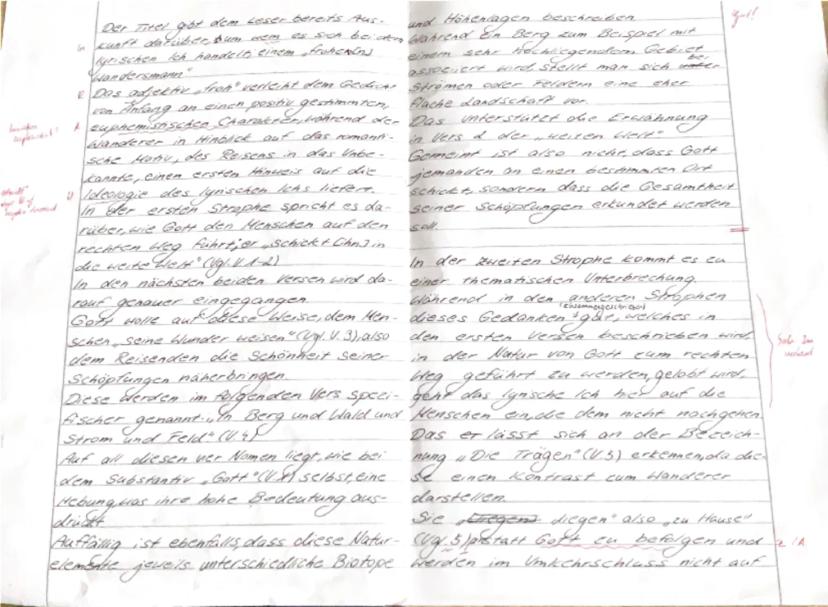 Der Titel gibt dem Leser bereits Aus-
kunft darüber, um wem es sich bei dem
lyrischen Ich handelt; einem „frohen
Wandersmann"
Das Adjektiv „froh" verleiht dem Gedicht
von Anfang an einen positiv gestimmten,
euphemistischen Charakter, während der
Wanderer in Hinblick auf das romanti-
sche Motiv, des Reisens in das Unbe-
kannte, einen ersten Hinweis auf die
Ideologie des lyrischen Ichs liefert.
In der ersten Strophe spricht es da-
rüber, wie Gott den Menschen auf den
rechten Weg führt; er „schickt [ihn] in
die weite Welt" (Vgl. V. 1-2)
In den nächsten beiden Versen wird da-
rauf genauer eingegangen
Gott wolle auf diese Weise, dem Men-
schen „seine Wunder weisen" (Vgl. V. 3), also
dem Reisenden die Schönheit seiner
Schöpfungen näherbringen.
Diese werden im folgenden Vers spezi-
fischer genannt: „In Berg und Wald und
Strom und Feld" (V. 4)
Auf all diesen vier Nomen liegt, wie bei
dem Substantiv „Gott" (V. 1) selbst, eine
Hebung, was ihre hohe Bedeutung aus-
drückt
Auffällig ist ebenfalls, dass diese Natur-
elemente jeweils unterschiedliche Biotope
und Höhenlagen beschreiben
Während ein Berg zum Beispiel mit
einem sehr hochliegendem Gebiet
assoziiert wird, stellt man sich bei
Strömen oder Feldern eine eher
flache Landschaft vor.
Das unterstützt die Erwähnung
in Vers 2 der „weiten Welt"
Gemeint ist also nicht, dass Gott
jemanden an einen bestimmten Ort
schickt, sondern dass die Gesamtheit
seiner Schöpfungen erkundet werden
soll.
In der zweiten Strophe kommt es zu
einer thematischen Unterbrechung
Während in den anderen Strophen
dieses Gedanken gut, welches in
den ersten Versen beschrieben wird,
in der Natur von Gott zum rechten
Weg geführt zu werden, gelobt wird,
geht das lyrische Ich hier auf die
Menschen ein, die dem nicht nachgehen
Das er lässt sich an der Bezeich-
nung „Die Trägen" (V. 5) erkennen, da die-
se einen Kontrast zum Wanderer
darstellen.
Sie „liegen" also „zu Hause"
(Vgl. 5) anstatt Gott zu befolgen und
werden im Umkehrschluss nicht auf
Gut!
A